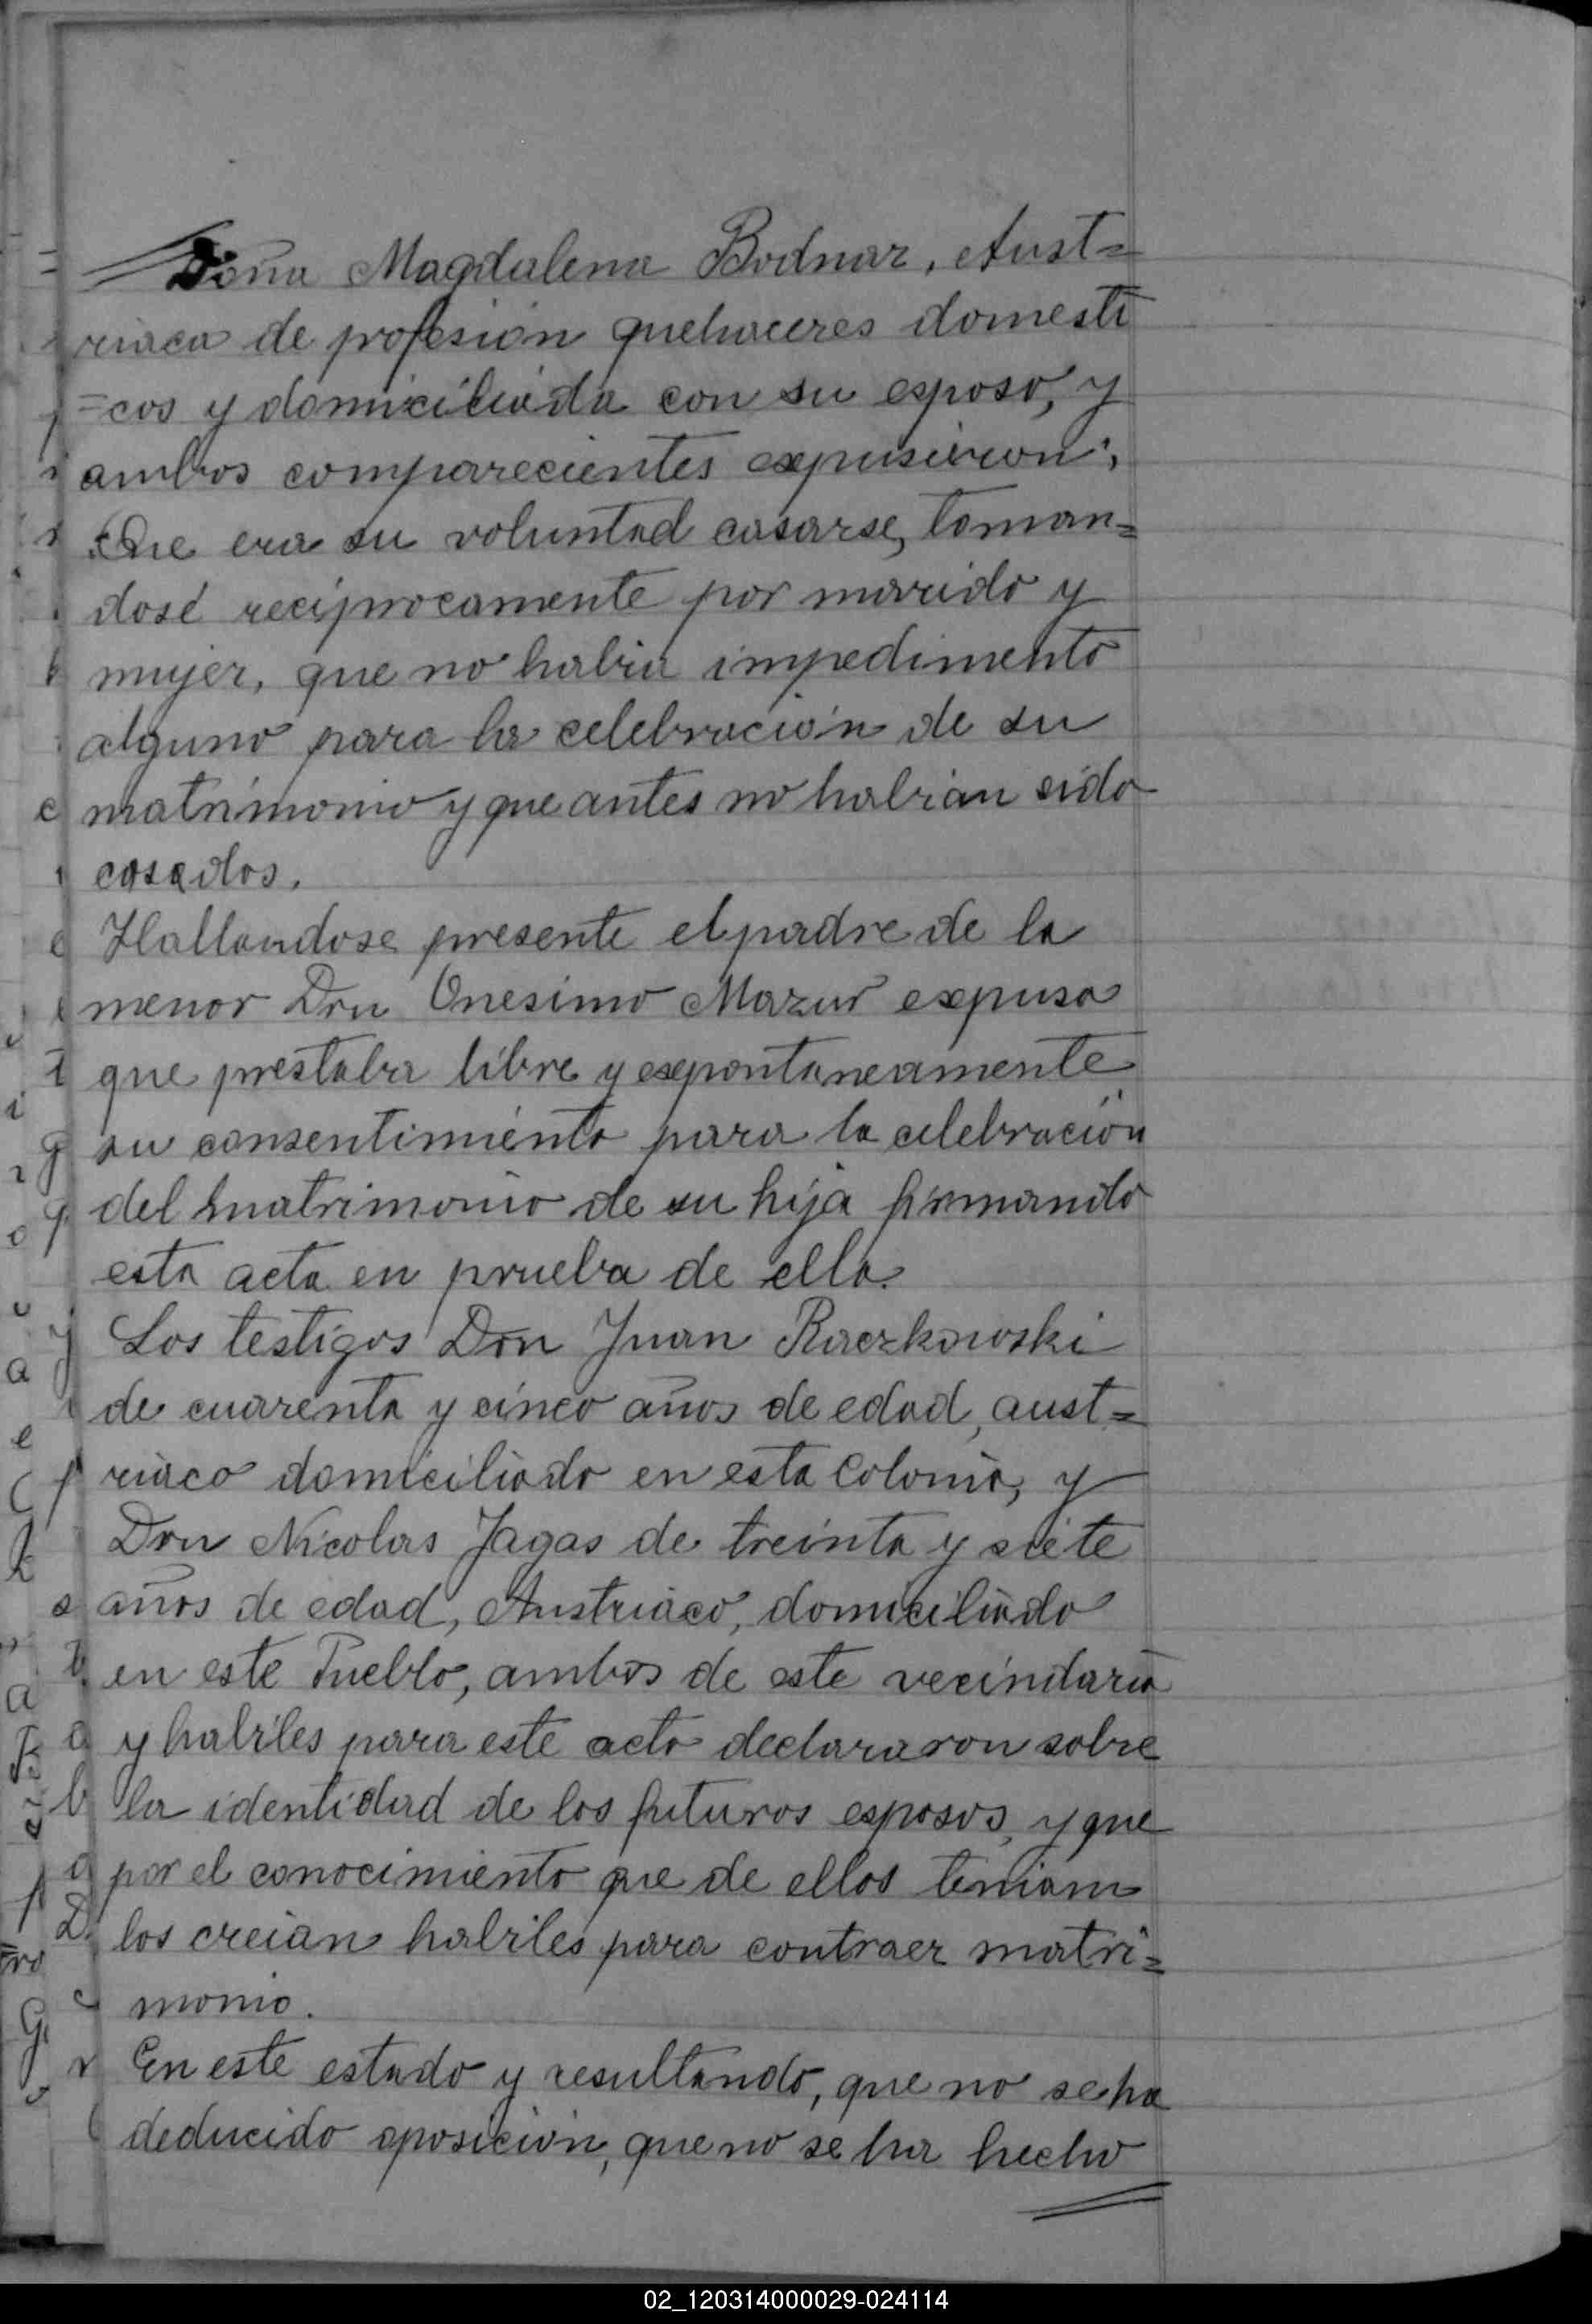 Doña Magdalena Bodnar, Aust=
riaca de profesión quehaceres domesti
=cos y domiciliada con su esposo, y
ambos comparecientes expusieron:
Que era su voluntad casarse, toman=
dosé reciprocamente por marido y
mujer, que no habia impedimento
alguno para la celebración de su
matrimonio y que antes no habian sido
casados.
Hallandose presente el padre de la
menor Don Onesimo Mazur expuso
que prestaba libre y expontaneamente
su consentimiento para la celebración
del matrimonio de su hija firmando
esta acta en prueba de ello.
Los testigos Don Juan Raczkowski
de cuarenta y cinco años de edad, aust=
riaco domiciliado en esta Colonia, y
Don Nicolas Jagas de treinta y siete
años de edad, Austriaco, domiciliado
en este Pueblo, ambos de este vecindario
y habiles para este acto declararon sobre
la identidad de los futuros esposos, y que
por el conocimiento que de ellos tenian
los creian habiles para contraer matri=
monio.
En este estado y resultando, que no se ha
deducido oposición, que no se ha hecho
02_120314000029-024114